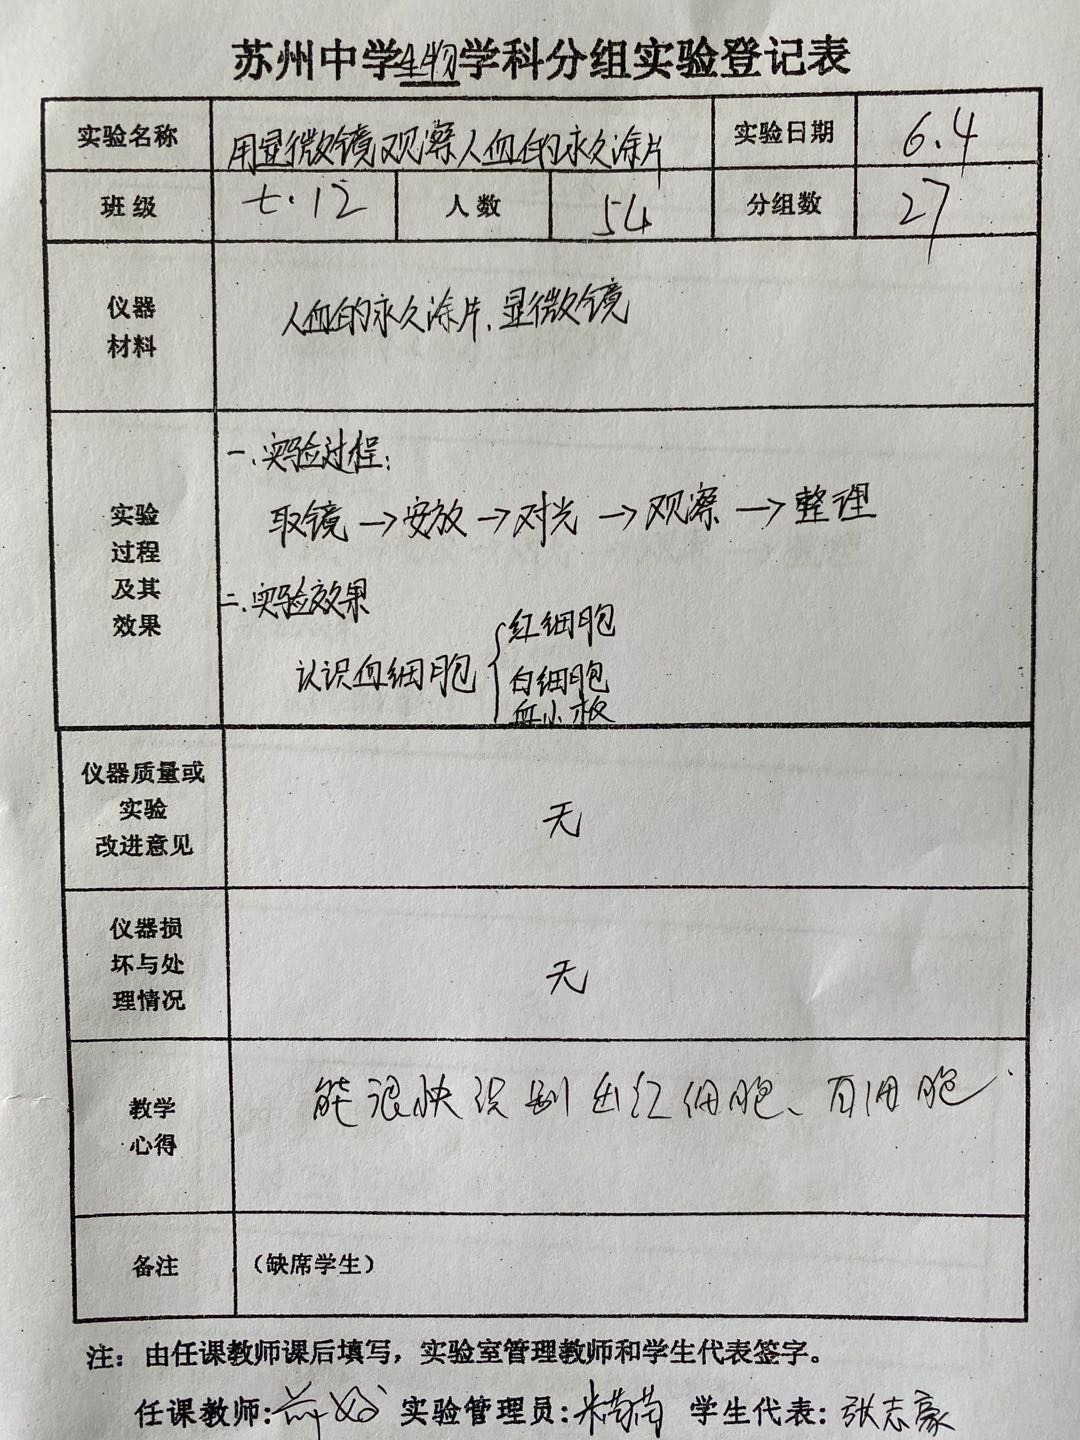 苏州中学生物学科分组实验登记表
实验名称 用显微镜观察人血的永久涂片 实验日期 6.4
班级 七.12 人数 54 分组数 27
仪器
材料
人血的永久涂片、显微镜
实验
过程
及其
效果
一.实验过程:
取镜→安放→对光→观察→整理
二.实验效果
认识血细胞
红细胞
白细胞
血小板
仪器质量或
实验
改进意见
无
仪器损
坏与处
理情况
无
教学
心得
能很快识别出红细胞、白细胞
备注 (缺席学生)
注:由任课教师课后填写,实验室管理教师和学生代表签字。
任课教师: 实验管理员: 学生代表:张志豪